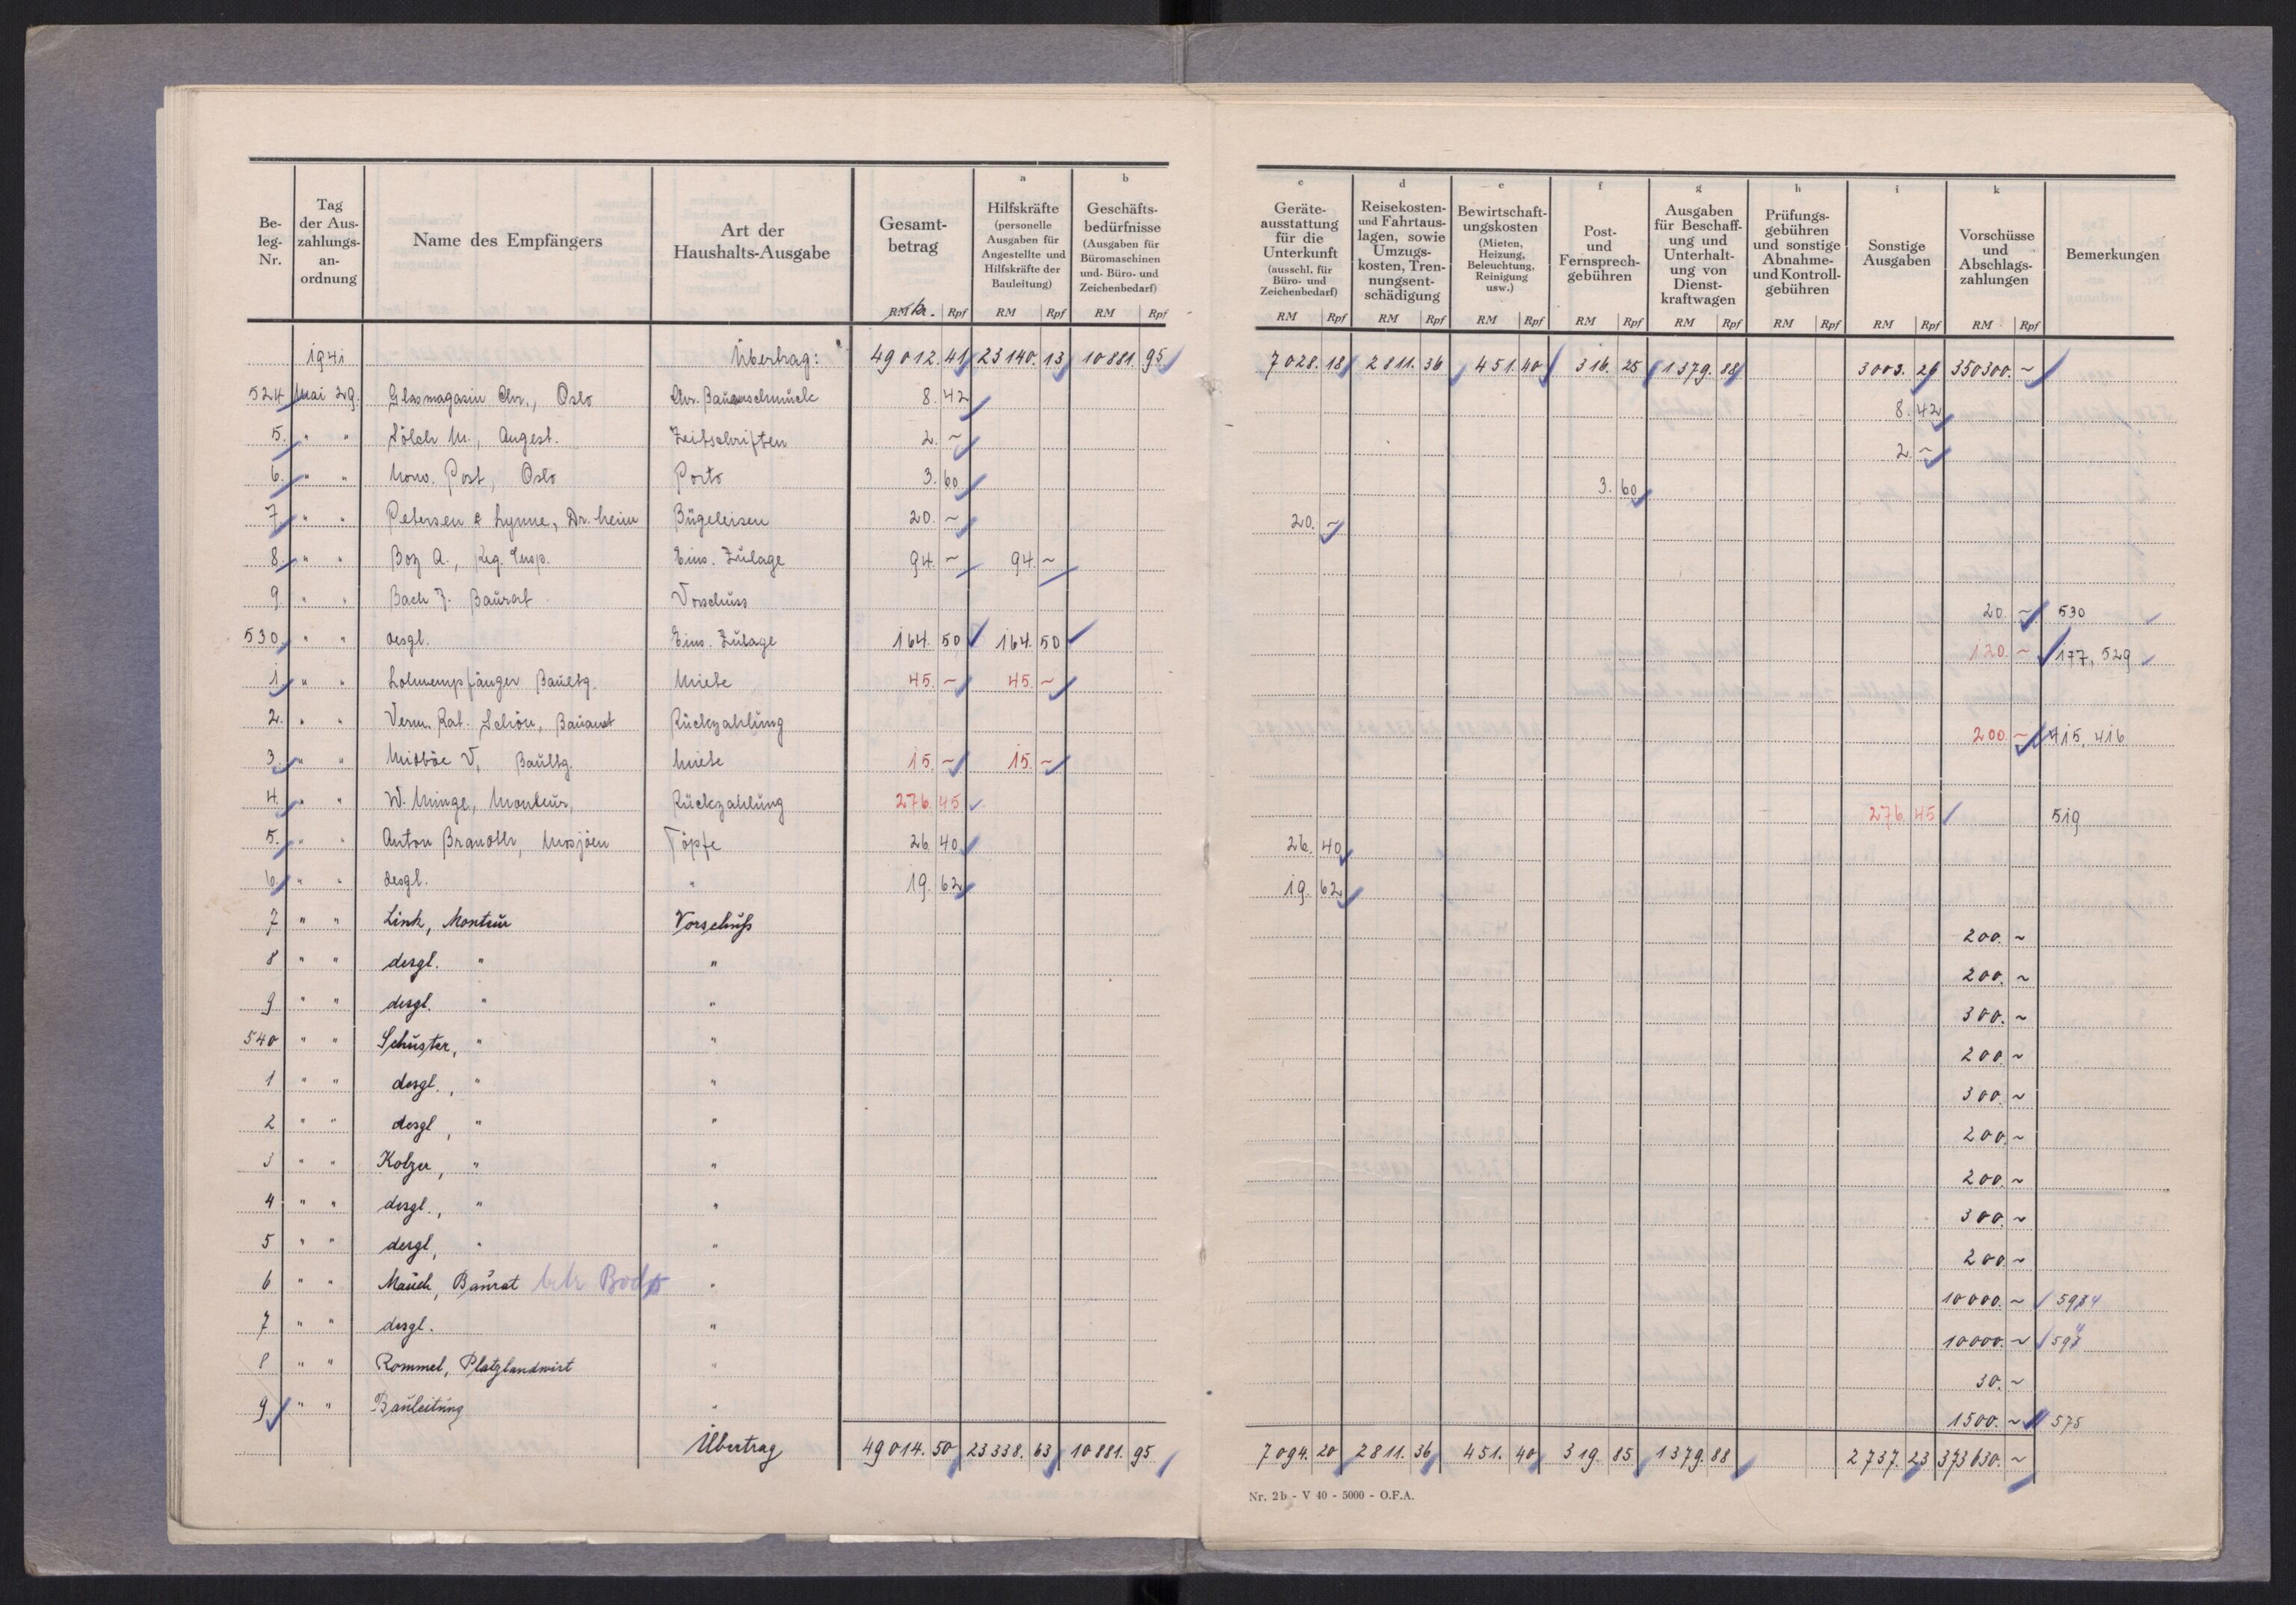 Be-leg-Nr. | Tag der Aus-zahlungs-an-ordnung | Name des Empfängers | Art der Haushalts-Ausgabe | Gesamt-betrag RM kr. Rpf | a Hilfskräfte (personelle Ausgaben für Angestellte und Hilfskräfte der Bauleitung) RM Rpf | b Geschäfts-bedürfnisse (Ausgaben für Büromaschinen und- Büro- und Zeichenbedarf) RM Rpf | c Geräte-ausstattung für die Unterkunft (ausschl. für Büro- und Zeichenbedarf) RM Rpf | d Reisekosten- und Fahrtaus-lagen, sowie Umzugs-kosten, Tren-nungsent-schädigung RM Rpf | e Bewirtschaft-ungskosten (Mieten, Heizung, Beleuchtung, Reinigung usw.) RM Rpf | f Post- und Fernsprech-gebühren RM Rpf | g Ausgaben für Beschaff-ung und Unterhalt-ung von Dienst-kraftwagen RM Rpf | h Prüfungs-gebühren und sonstige Abnahme- und Kontroll-gebühren RM Rpf | i Sonstige Ausgaben RM Rpf | k Vorschüsse und Abschlags-zahlungen RM Rpf | Bemerkungen
1941 Übertrag: 49012.41 23140.13 10881.95 7028.18 2811.36 451.40 316.25 1379.88 3003.26 350300.~
524 Mai 29. Glasmagasin Chr., Oslo 8.42 8.42
5. " " Angest. Zeitschriften 2.~ 2.~
6. " " Norw. Post, Oslo Porto 3.60 3.60
7 " " Petersen & Lynne, Dr.heim Bügeleisen 20.~ 20.~
8. " " Boz A., Reg. Insp. Eins. Zulage 94.~ 94.~
9. " " Bach J. Baurat Vorschuss 20.~ 530
530. " " desgl. Eins. Zulage 164.50 164.50 120.~ 177, 529
1. " " Lohnempfänger Baultg. Miete 45.~ 45.~
2. " " Verm. Rat. Schön, Bauamt Rückzahlung 200.~ 415, 416
3. " " V, Baultg. Miete 15.~ 15.~
4. " " W. Minge, Monteur, Rückzahlung 276.45 276.45 519
5. " " Anton Mosjöen Töpfe 26.40 26.40
6. " " desgl. " 19.62 19.62
7 " " Link, Monteur Vorschuß 200.~
8 " " desgl. " " 200.~
9 " " desgl. " " 300.~
540 " " Schuster, " " 200.~
1 " " desgl., " " 300.~
2 " " desgl, " " 200.~
3 " " Kolzer, " " 200.~
4 " " desgl., " " 300.~
5 " " desgl, " " 200.~
6 " " Mauch, Baurat Bodø " 10000.~ 5934
7 " " desgl. " 10000.~ 593
8 " " Rommel, Platzlandwirt " 30.~
9 " " Bauleitung " 1500.~ 575
Übertrag 49014.50 23338.63 10881.95 7094.20 2811.36 451.40 319.85 1379.88 2737.23 373630.~
Nr. 2b - V 40 - 5000 - O.F.A.